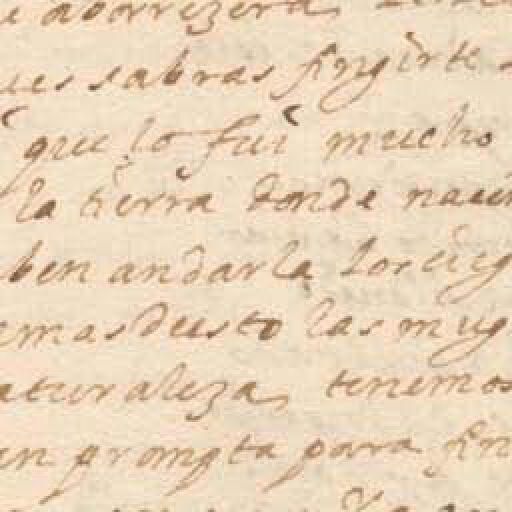 e aborrezera
ues sabras fingirte
que lo fui mucho
la tierra donde nacim
ben andarla los cieg
emas duesto las mug
aturaleza, tenemos
en prompta para fin